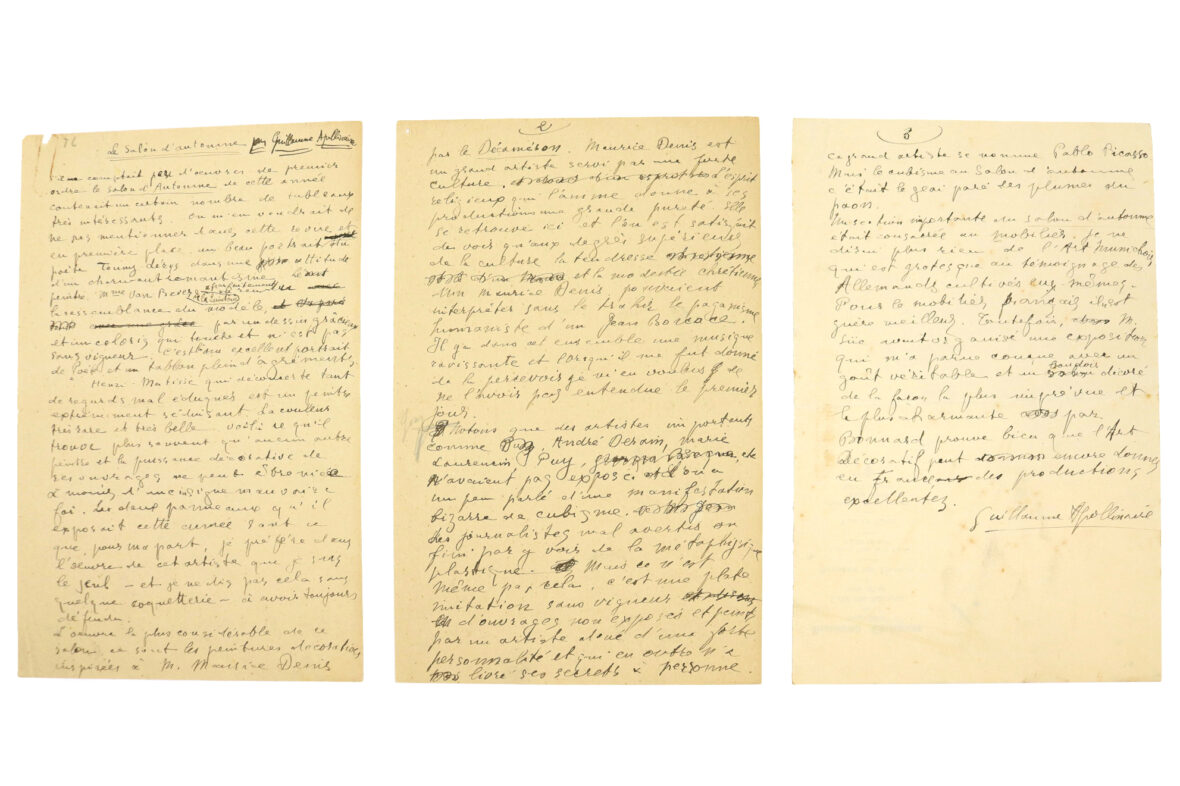 Le Salon d'automne par Guillaume Apollinaire
comptait peu d'œuvres de premier
ordre le Salon d'Automne de cette année
contenait un certain nombre de tableaux
très intéressants. On m'en voudrait de
ne pas mentionner dans cette revue et
en première place un beau portrait du
poète Tancy dirys dans une attitude
d'un charmant romantisme. Le
peintre Mme Van Bever a parfaitement rendu
la ressemblance du modèle,
par un dessin gracieux
et un coloris qui tendre et n'est pas
sans vigueur. C'est un excellent portrait
de Poète et un tableau plein d'agréments.
Henri-Matisse qui déconcerte tant
de regards mal éduqués est un peintre
extrêmement séduisant. La couleur
très rare et très belle. Voilà ce qu'il
trouve plus souvent qu'aucun autre
peintre et la puissance décorative de
ses ouvrages ne peut être niée
à moins d'insigne mauvaise
foi. Les deux panneaux qu'il
exposait cette année sont ce
que, pour ma part, je préfère dans
l'œuvre de cet artiste que je suis
le seul – et je ne dis pas cela sans
quelque coquetterie – à avoir toujours
défendu.
L'œuvre la plus considérable de ce
salon, ce sont les peintures décoratives
inspirées à M. Maurice Denis
2
par le Décaméron. Maurice Denis est
un grand artiste servi par une forte
culture. l'esprit
religieux qui l'anime donne à ses
productions une grande pureté. Elle
se retrouve ici et l'on est satisfait
de voir qu'aux degrés supérieurs
de la culture la tendresse
et la modestie chrétienne
d'un Maurice Denis, pouvaient
interpréter sans le trahir le paganisme
humaniste d'un Jean Boccace.
Il y a dans cet ensemble une musique
ravissante et lorsqu'il me fut donné
de la percevoir je m'en voulus de
ne l'avoir pas entendue le premier
jour.
Notons que des artistes importants
comme André Derain, Marie
Laurencin, Puy, Braque, etc
n'avaient pas exposé et l'on a
un peu parlé d'une manifestation
bizarre de cubisme.
Les journalistes mal avertis ont
fini par y voir de la métaphysique
plastique. Mais ce n'est
même pas cela, c'est une plate
imitation sans vigueur
d'ouvrages non exposés et peints
par un artiste doué d'une forte
personnalité et qui en outre n'a
livré ses secrets à personne.
3
Ce grand artiste se nomme Pablo Picasso.
Mais le cubisme au Salon d'automne
c'était le geai paré des plumes du
paon.
Une section importante du Salon d'automne
était consacrée au mobilier. Je ne
dirai plus rien de l'Art Munichois
qui est grotesque au témoignage des
Allemands cultivés eux-mêmes.
Pour le mobilier français il n'est
guère meilleur. Toutefois, M.
Süe avait organisé une exposition
qui m'a parue conçue avec un
goût véritable et un boudoir décoré
de la façon la plus imprévue et
la plus charmante par
Bonnard prouve bien que l'Art
Décoratif peut encore donner
en France des productions
excellentes.
Guillaume Apollinaire